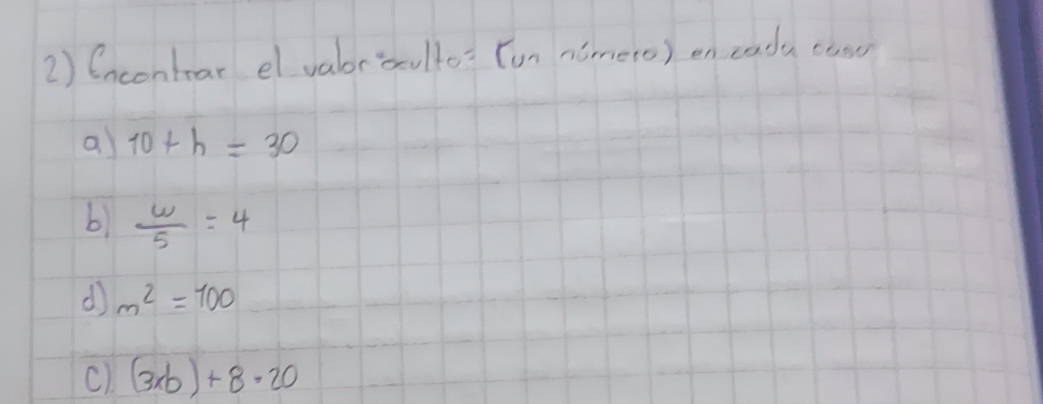 2) Encontrar el valor oculto: (un número) en cada caso
a) 10 + h = 30
b) w/5 = 4
d) m² = 100
c) (3xb) + 8 = 20